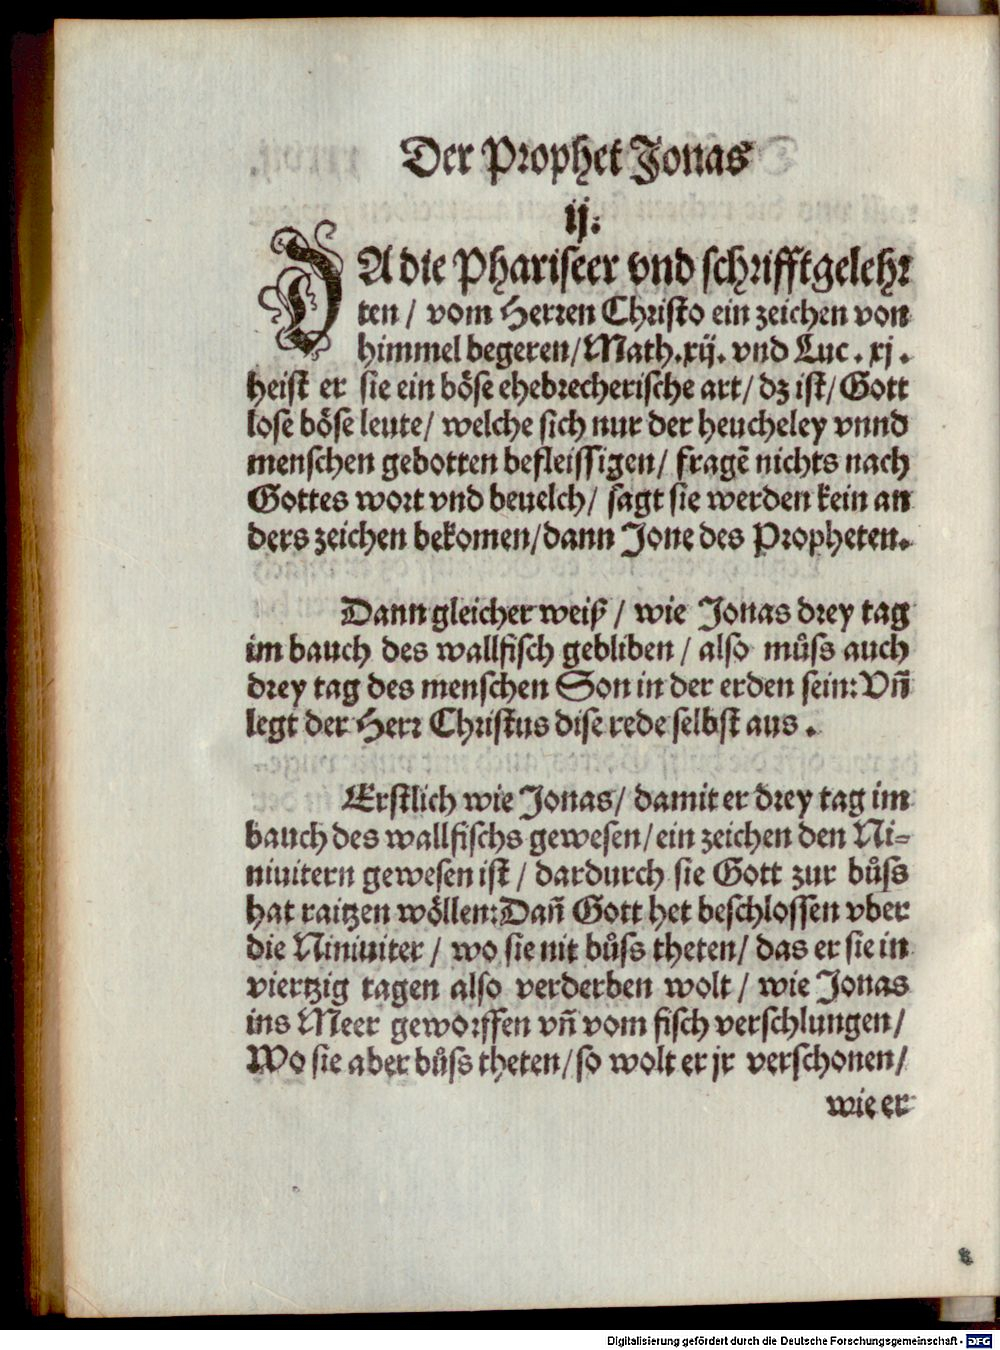 Der Prophet Jonas
ij.
DA die Phariseer vnd schrifftgelehr
ten / vom Herren Christo ein zeichen von
himmel begeren/Math.xij. vnd Luc. xj.
heist er sie ein böse ehebrecherische art/ dz ist/ Gott
lose böse leute/ welche sich nur der heucheley vnnd
menschen gebotten befleissigen/ fragē nichts nach
Gottes wort vnd beuelch/ sagt sie werden kein an
ders zeichen bekomen/dann Jone des Propheten.
Dann gleicher weiß / wie Jonas drey tag
im bauch des wallfisch gebliben / also můss auch
drey tag des menschen Son in der erden sein: Vn̄
legt der Herr Christus dise rede selbst aus.
Erstlich wie Jonas/ damit er drey tag im
bauch des wallfischs gewesen/ ein zeichen den Ni-
niuitern gewesen ist / dardurch sie Gott zur bůss
hat raitzen wöllen: Dan̄ Gott het beschlossen vber
die Niniuiter / wo sie nit bůss theten/ das er sie in
viertzig tagen also verderben wolt / wie Jonas
ins Meer geworffen vn̄ vom fisch verschlungen/
Wo sie aber bůss theten/ so wolt er jr verschonen/
wie er
Digitalisierung gefördert durch die Deutsche Forschungsgemeinschaft - DFG